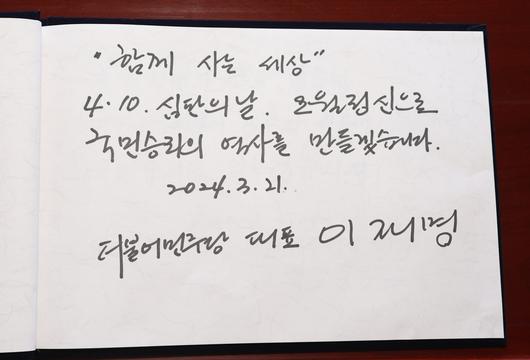 "함께 사는 세상"
4.10. 심판의 날. 오월정신으로
국민승리의 역사를 만들겠습니다.
2024.3.21.
더불어민주당 대표 이재명